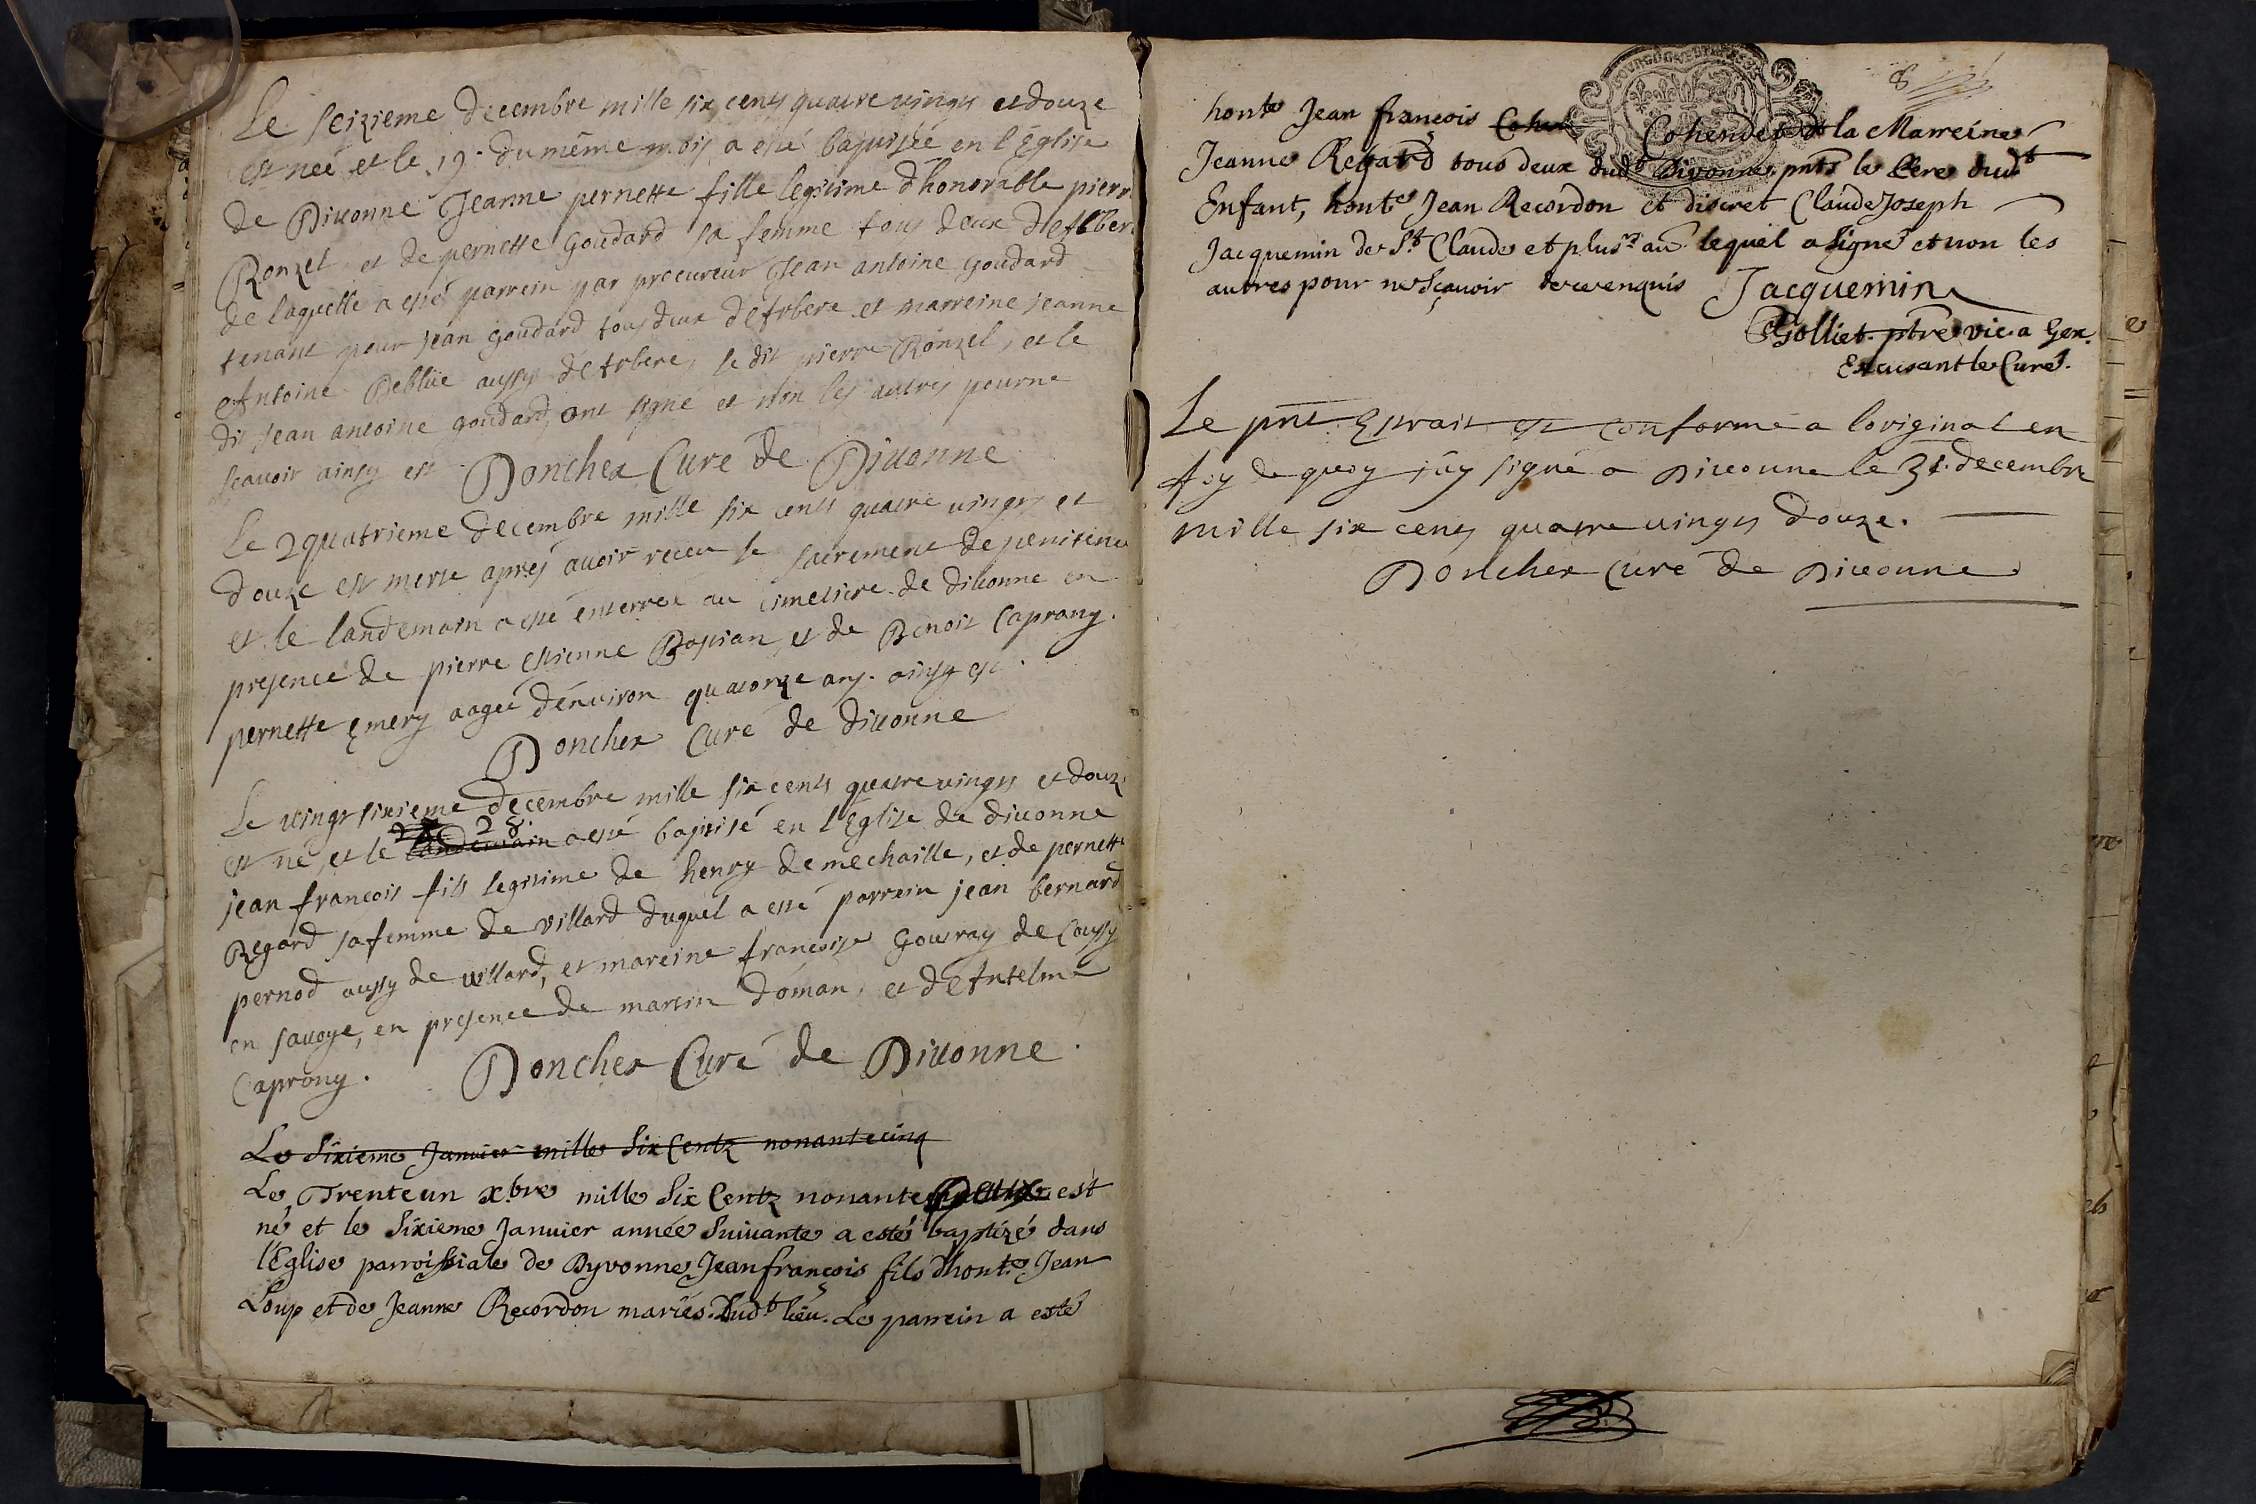 Le seizieme decembre mille six cents quatre vingts et douze
est neé et le 19. du même mois a esté baptisée en l'Eglise
de Divonne Jeanne pernette fille legitime d'honorable pierre
Ronzel et de pernette Goudard sa femme tous deux d'Arbere
de laquelle a esté parrein par procureur Jean antoine Goudard
tenant pour jean Goudard tous deux d'Arbere et marreine jeanne
Antoine Deblüe aussy d'Arbere, le dit pierre Ronzel, et le
dit jean antoine goudard, ont signé et non les autres pour ne
scavoir ainsy est Donchex Curé de Divonne
Le 2quatrieme decembre mille six cents quatre vingts et
douze est morte aprés avoir receu le sacrement de penitence
et le landemain a esté enterreé au cimetiere de divonne en
presence de pierre estienne et de Benoit Caprony.
pernette emery aageé d'environ quatorze ans. ainsy est.
Donchex Curé de divonne
Le vingt sixieme decembre mille six cents quatre vingts et douze
est né, et le landemain 28. a esté baptisé en l'Eglise de divonne
jean francois fils legitime de henry de mechaille, et de pernette
Regard sa femme de villard duquel a esté parrein jean bernard
pernod aussy de villard, et mareine francoise de
en savoye, en presence de martin doman, et d'Antelme
Caprony. Donchex Curé de Divonne.
Le Sixieme Janvier mille Six Centz nonante cinq
Le Trente un xbre mille Six Centz nonante est
né et le Sixieme Janvier année Suivante a esté baptizé dans
l'Eglise parroissiale de Dyvonne Jean françois fils d'honte Jean
Loup et de Jeanne Recordon mariés dudt lieu. Le parrein a esté
8
honte Jean françois Cohend Cohendet et la Marreine
Jeanne Regard tous deux dudt Divonne pnts le Pere dudt
Enfant, honte Jean Recordon et discret Claude Joseph
Jacquemin de St Claude et plusrs au. lequel a signé et non les
autres pour ne Sçavoir de ce enquis Jacquemin
Golliet ptre vic. a Gex.
Excusant le Curé.
Le pnt Extrait est conforme a l'original en
foy de quoy j'ay signé a Divonne le 31. decembre
mille six cents quatre vingts douze.
Donchex curé de Divonne